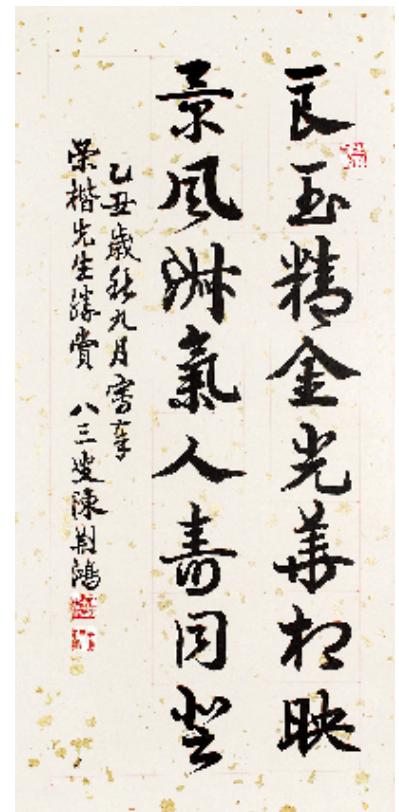 良玉精金光華相映
景風淑氣人壽同登
乙丑歲秋九月寫奉
榮楷先生雅賞 八三叟陳荆鴻